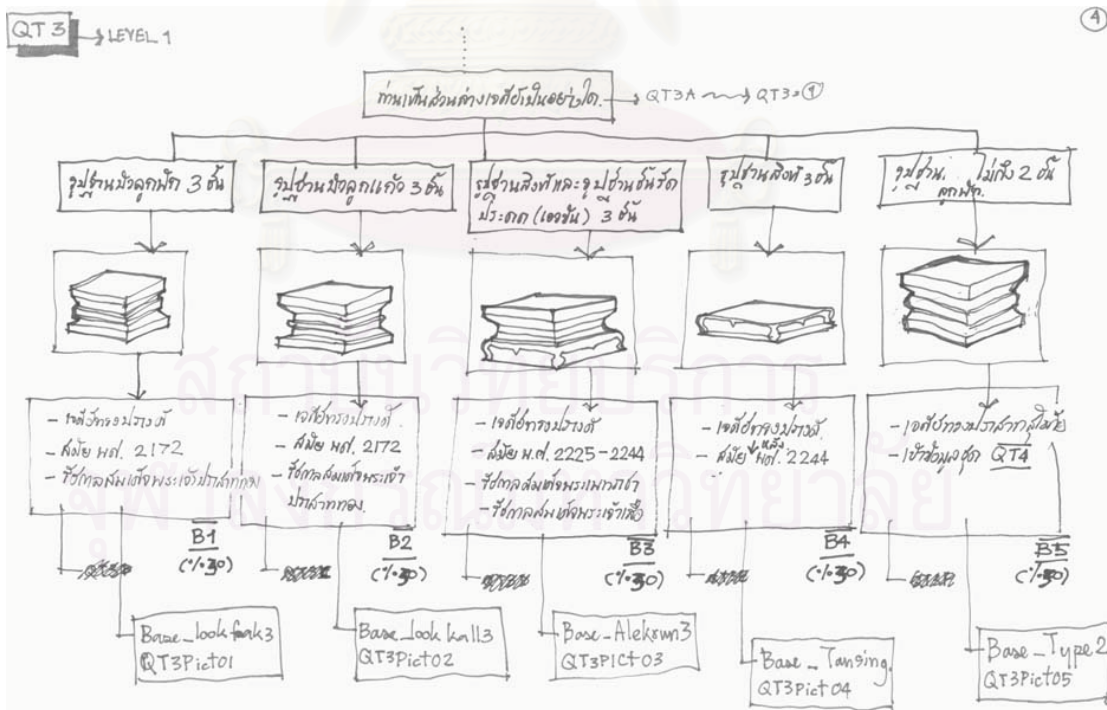 QT 3 → LEVEL 1
4
ท่านเห็นส่วนล่างเจดีย์เป็นอย่างใด. → QT3A → QT3=1
รูปฐานบัวลูกฟัก 3 ชั้น
รูปฐานบัวลูกแก้ว 3 ชั้น
รูปฐานสิงห์และรูปฐานชั้นรัด
ประคด (เอวขัน) 3 ชั้น
รูปฐานสิงห์ 3 ชั้น
รูปฐาน. ไม่ถึง 2 ชั้น
ลูกฟัก.
- เจดีย์ทรงปรางค์
- สมัย พศ. 2172
- รัชกาลสมเด็จพระเจ้าปราสาททอง
B1
(%30)
- เจดีย์ทรงปรางค์.
- สมัย พศ. 2172
- รัชกาลสมเด็จพระเจ้า
ปราสาททอง.
B2
(%30)
- เจดีย์ทรงปรางค์
- สมัย พ.ศ. 2225-2244
- รัชกาลสมเด็จพระเพทราชา
- รัชกาลสมเด็จพระเจ้าเสือ
B3
(%30)
- เจดีย์ทรงปรางค์.
- สมัย หลัง พศ. 2244
B4
(%30)
- เจดีย์ทรงปราสาท
- เข้าข้อมูลชุด QT4
B5
Base_lookfak3
QT3Pict01
Base_lookkall3
QT3Pict02
Base_Alekrun3
QT3PICT03
Base_Tansing.
QT3Pict04
Base_Type2
QT3Pict05
สถาบันวิทยบริการ
จุฬาลงกรณ์มหาวิทยาลัย